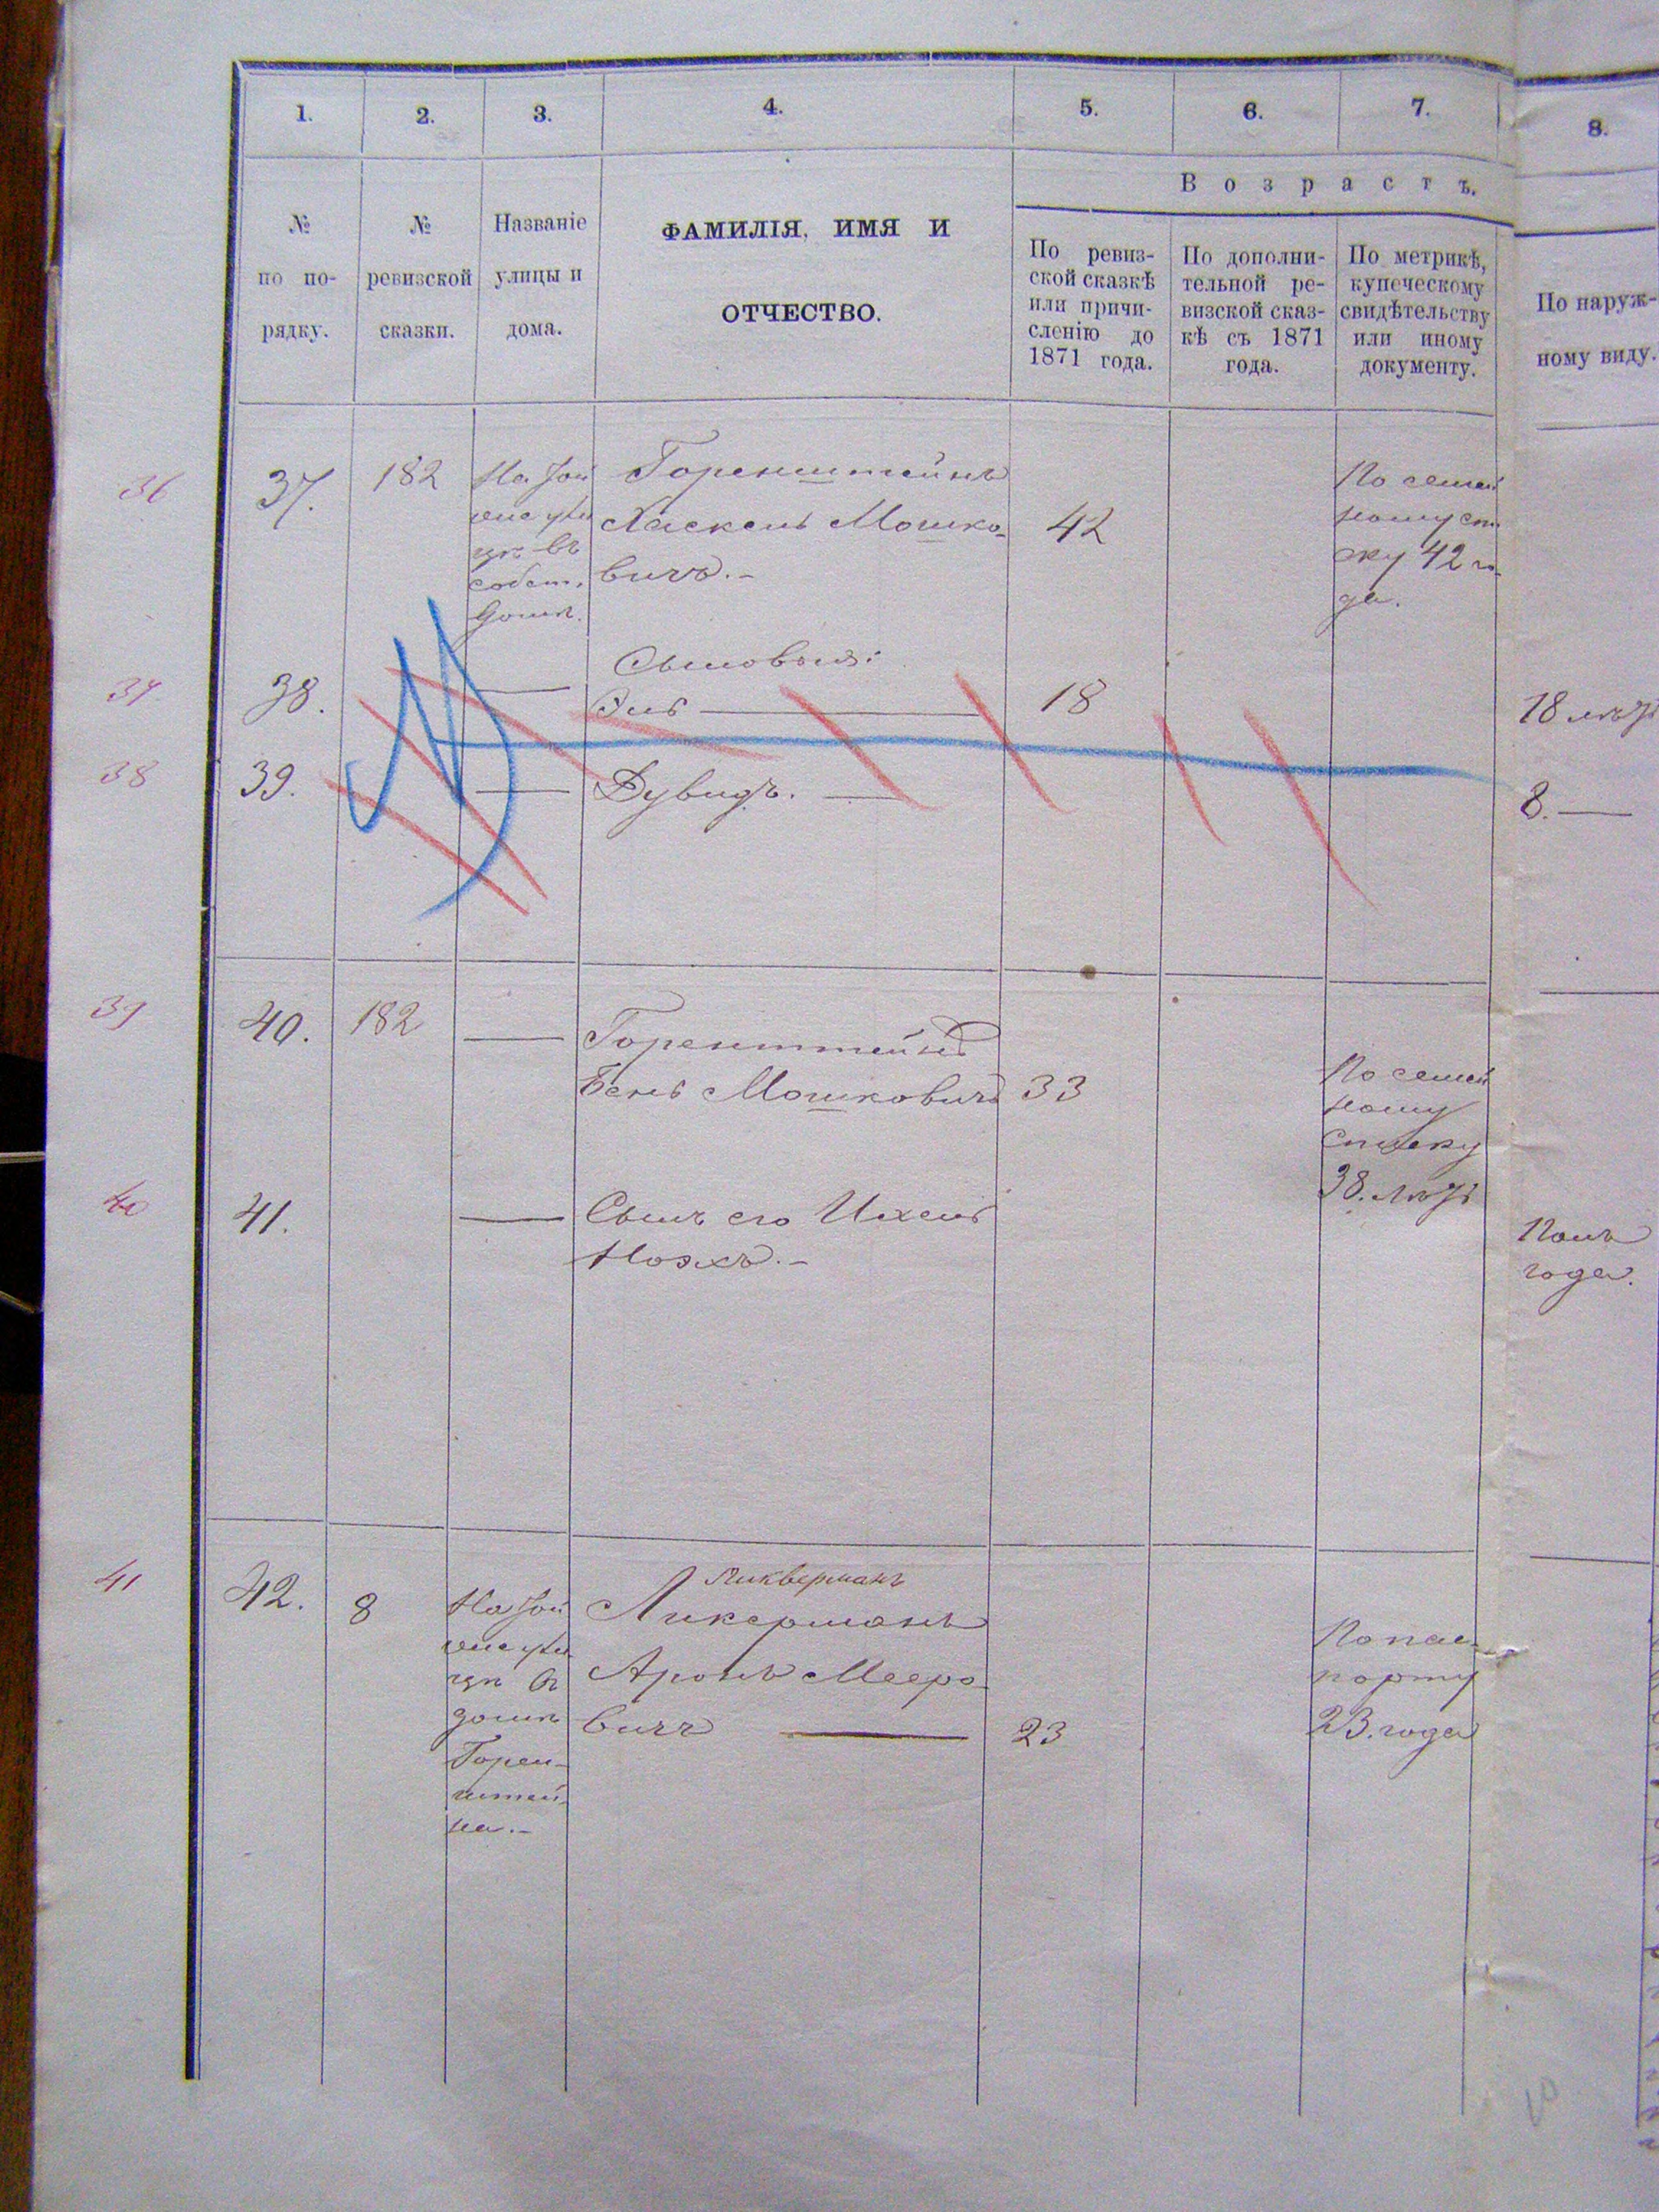 1. 2. 3. 4. 5. 6. 7. 8.
№ по по-рядку.
№ ревизской сказки.
Названіе улицы и дома.
ФАМИЛІЯ, ИМЯ И
ОТЧЕСТВО.
Возрастъ.
По ревиз-
ской сказкѣ
или причи-
сленію до
1871 года.
По дополни-
тельной ре-
визской сказ-
кѣ съ 1871
года.
По метрикѣ,
купеческому
свидѣтельству
или иному
документу.
По наруж-
ному виду.
36
37.
182
цѣ въ
собст.
домѣ.
Горенштейнъ
Хаскель Мошко-
вичъ.-
42
По семей
ному спи
ску 42 го-
да.
37
38.
Сыновья:
18
18 лѣтъ
38
39.
Дувидъ.
8.
39
40.
182
Горенштейнъ
Бень Мошковичъ
33
По семей
ному
списку
38. лѣтъ
40
41.
Сынъ его Ихель
Нояхъ.-
Полъ
года.
41
42.
8
цѣ въ
домѣ
Горен-
штей-
на.-
Ликверманъ
Ликерманъ
Аронъ Мееро-
вичъ
23
По пас-
порту
23. года